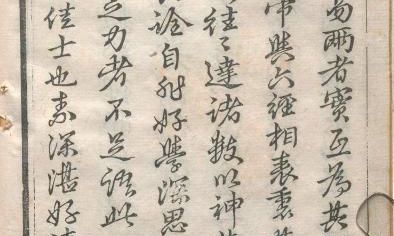 爾者實正為其
常與六經相表裏
往往達諸數以神
詮自非好學深思
定力者不足語此
佳士也素深湛好